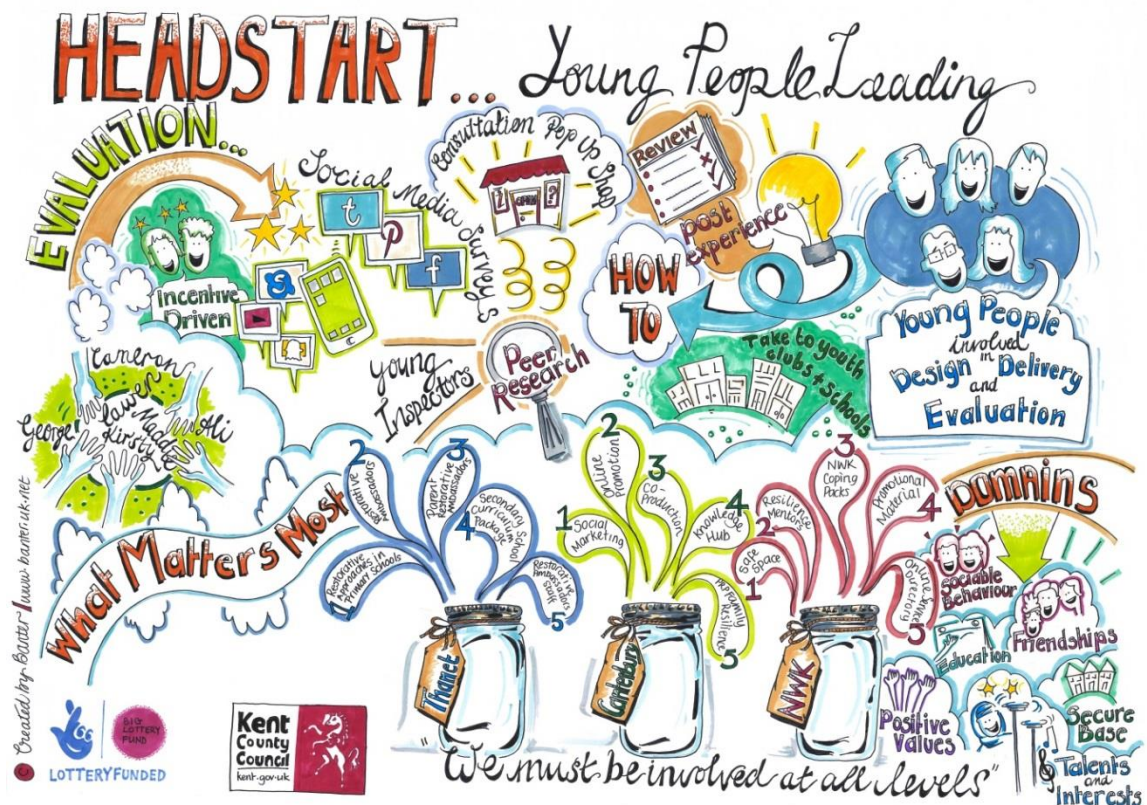 HEADSTART... Young People Leading
EVALUATION...
Incentive
Driven
Social Media Surveys
Consultation Pop Up Shop
OPEN
Review
post
experience
HOW
TO
Young People
involved
in
Design Delivery
and
Evaluation
Take to youth
clubs + Schools
Young
Inspectors
Peer
Research
Cameron
George
Lawer
Maddie
Kirsty
Ali
What Matters Most
1
Restorative
Approaches in
Primary Schools
2
Restorative
Ambassadors
3
Parent
Restorative
Ambassadors
4
Secondary School
Curriculum
Package
5
Restorative
Ambassadors
Staff
Thanet
1
Social
Marketing
2
Online
Promotion
3
CO-
Production
4
Knowledge
Hub
5
Family
Resilience
Canterbury
1
Safe
Space
2
Resilience
Mentors
3
NWK
Coping
Packs
4
Promotional
Material
5
Online Service
Directory
NWK
DOMAINS
Sociable
Behaviour
Friendships
Education
Positive
Values
Secure
Base
Talents
and
Interests
"We must be involved at all levels"
© Created by Banter / www.banter.uk.net
BIG
LOTTERY
FUND
LOTTERY FUNDED
Kent
County
Council
kent.gov.uk